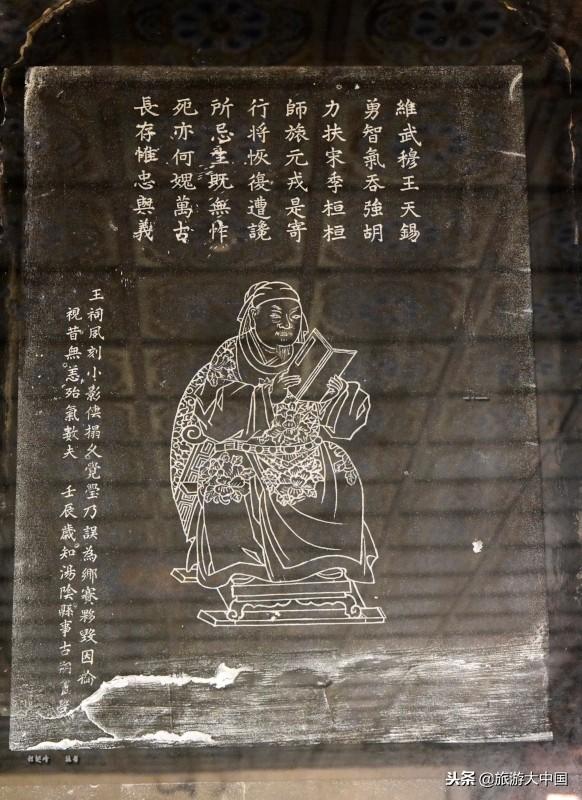 維武穆王天錫
勇智氣吞強胡
力扶宋季桓桓
師旅元戎是寄
行将恢復遭讒
所忌生既無怍
死亦何媿萬古
長存惟忠與義
王祠夙刻小影使搨久覺瑩乃誤為鄉賽夥毀因
視昔無恙殆氣數夫 壬辰歲知湯陰縣事古
头条 @旅游大中国